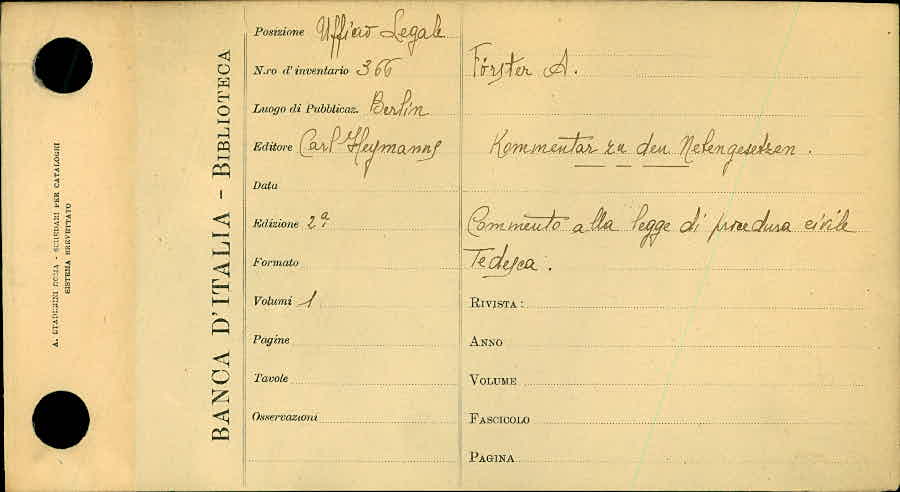 A. STADERINI ROMA - SCHEDARI PER CATALOGHI
SISTEMA BREVETTATO
BANCA D'ITALIA - BIBLIOTECA
Posizione Ufficio Legale
N.ro d'inventario 366
Luogo di Pubblicaz. Berlin
Editore Carl Heymanns
Data
Edizione 2ª
Formato
Volumi 1
Pagine
Tavole
Osservazioni
Förster A.
Kommentar zu den Nebengesetzen.
Commento alla legge di procedura civile
Tedesca.
RIVISTA:
ANNO
VOLUME
FASCICOLO
PAGINA